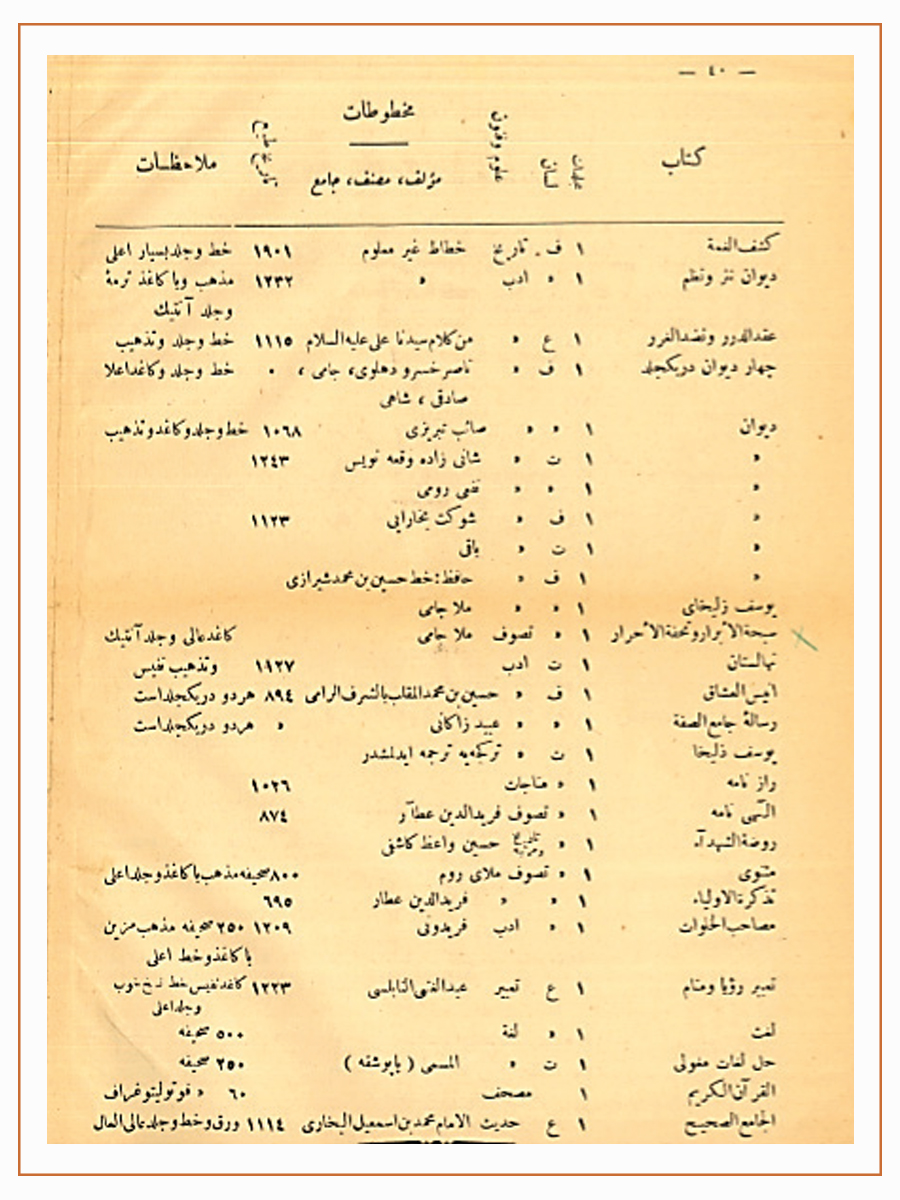 — ٤٠ —
مخطوطات
كتاب جلد لسان علوم وفنون مؤلف، مصنف، جامع تاريخ طبع ملاحظات
كشف الغمة ١ ف. تاريخ خطاط غير معلوم ١٩٠١ خط وجلد بسيار اعلى
ديوان نثر ونظم ١ » ادب » ١٢٣٢ مذهب وبا كاغذ ترمۀ
وجلد آنتيك
عقد الدرر ونضد الغرر ١ ع » من كلام سيدنا على عليه السلام ١١١٥ خط وجلد وتذهيب
چهار ديوان دريكجلد ١ ف » ناصر خسرو دهلوى، جامى ، ٠ خط وجلد وكاغذ اعلا
صادقى ، شاهى
ديوان ١ » » صائب تبريزى ١٠٦٨ خط وجلد وكاغذ وتذهيب
» ١ ت » شانى زاده وقعه نويس ١٢٤٣
» ١ » » نفعى رومى
» ١ ف » شوكت بخارايى ١١٢٣
» ١ ت » باقى
» ١ ف » حافظ: خط حسين بن محمد شيرازى
يوسف زليخاى ١ » » ملا جامى
سبحة الأبرار وتحفة الأحرار ١ » تصوف ملا جامى كاغد عالى وجلد آنتيك
نهالستان ١ ت ادب ١٩٢٧ وتذهيب نفيس
انيس العشاق ١ ف » حسين بن محمد المقلب بالشرف الرامى ٨٩٤ هردو دريكجلد است
رسالۀ جامع الصفة ١ » » عبيد زاكانى » هردو دريكجلد است
يوسف ذليخا ١ ت » تركجه يه ترجمه ايدلمشدر
راز نامه ١ » مناجات ١٠٢٦
الٓهى نامه ١ » تصوف فريد الدين عطآر ٨٧٤
روضة الشهدآء ١ » تاريخ ومرثيه حسين واعظ كاشفى
مثنوى ١ » تصوف ملاى روم ٨٠٠ صحيفه مذهب با كاغذ وجلد اعلى
تذكرة الاولياء ١ » » فريد الدين عطار ٦٩٥
مصاحب الخلوات ١ » ادب فريدونى ١٢٠٩ ٢٥٠ صحيفه مذهب مزين
با كاغذ وخط اعلى
تعبير رؤيا ومنام ١ ع تعبير عبد الغنى النابلسى ١٢٢٣ كاغد نفيس خط نسخ خوب
وجلد اعلى
لغت ١ » لغة ٥٠٠ صحيفه
حل لغات مغولى ١ ت » المسمى ( بابوشقه ) ٢٥٠ صحيفه
القرآن الكريم ١ مصحف ٦٠ » فوتوليتوغراف
الجامع الصحيح ١ ع حديث الامام محمد بن اسمعيل البخارى ١١١٤ ورق وخط وجلد عالى العال